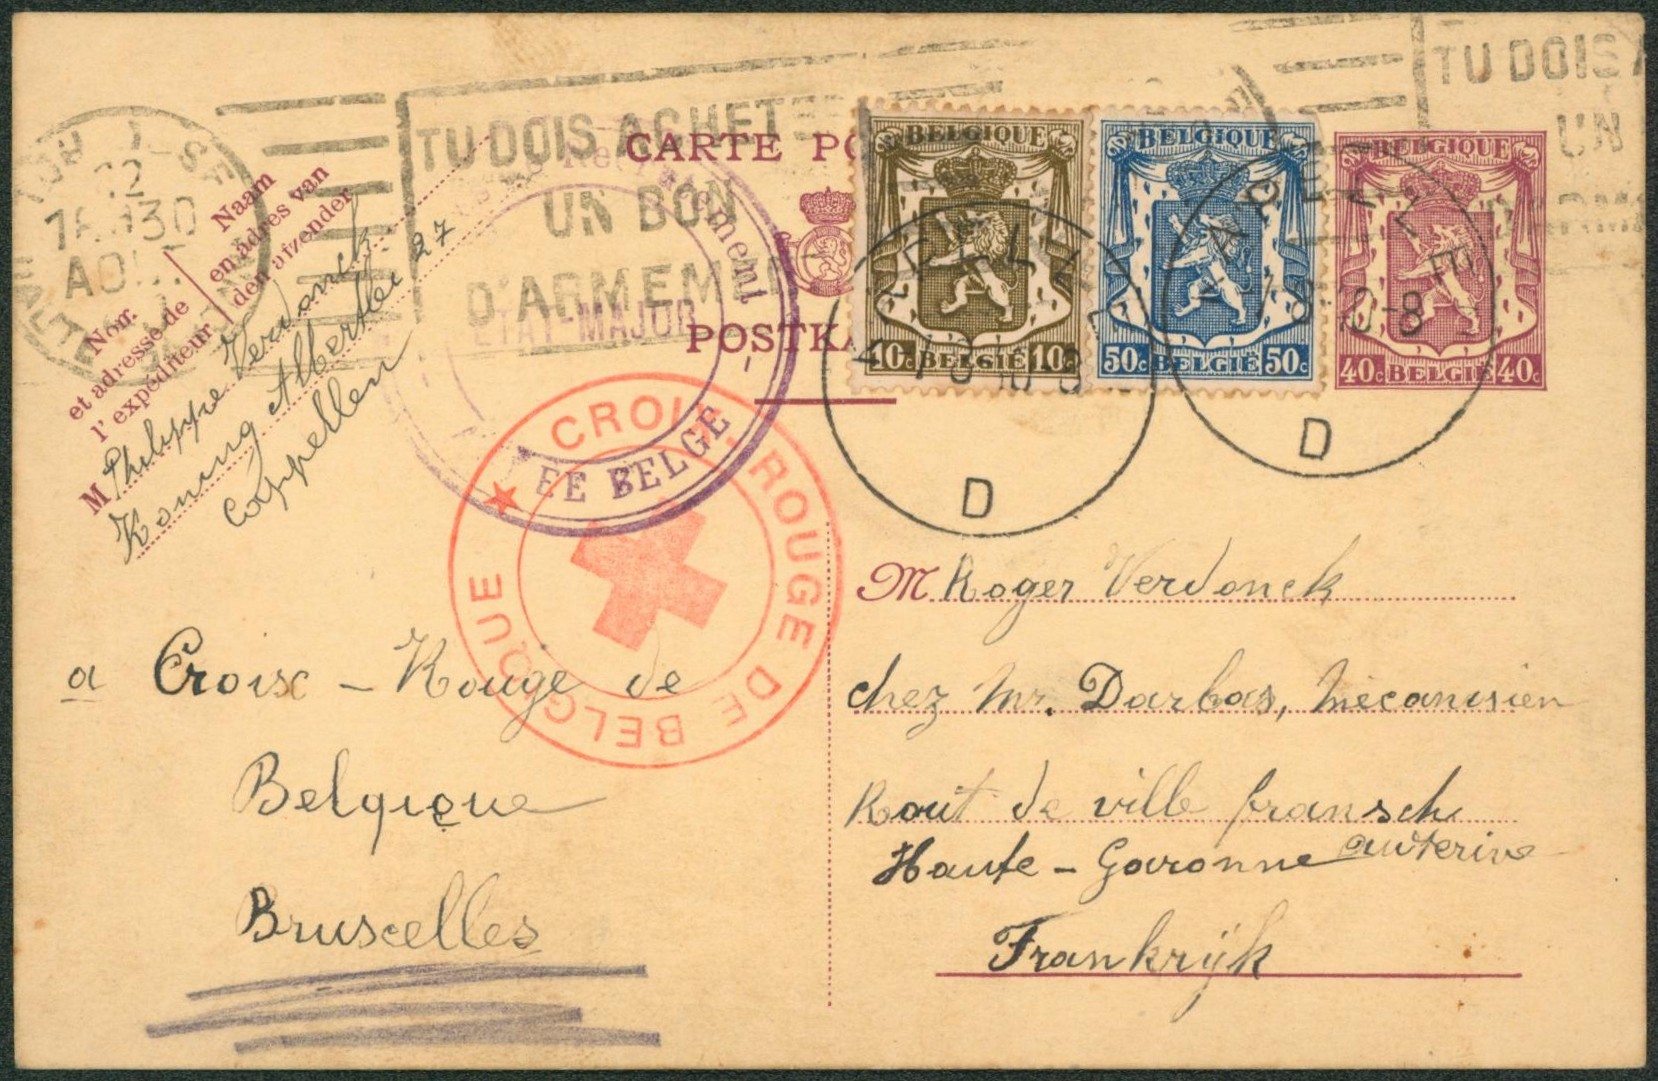 TU DOIS ACHETE
UN BON
D'ARMEMEN
TU DOIS A
UN
D'ARMA
22
AOU
CARTE PO
POSTKA
BELGIQUE
10c BELGIË 10c
BELGIQUE
50c BELGIË 50c
BELGIQUE
40c BELGIË 40c
D
D
ETAT-MAJOR
EE BELGE
CROIX-ROUGE DE BELGIQUE
Naam
en adres van
den afzender
Nom
et adresse de
l'expéditeur
M Philippe Verdonck
Koning Albertlei 27
Cappellen
a Croix-Rouge de
Belgique
Bruxelles
M Roger Verdonck
chez Mr. Darbas, Mécanisien
Rout de ville fransch
Haute-Garonne auterive
Frankrijk